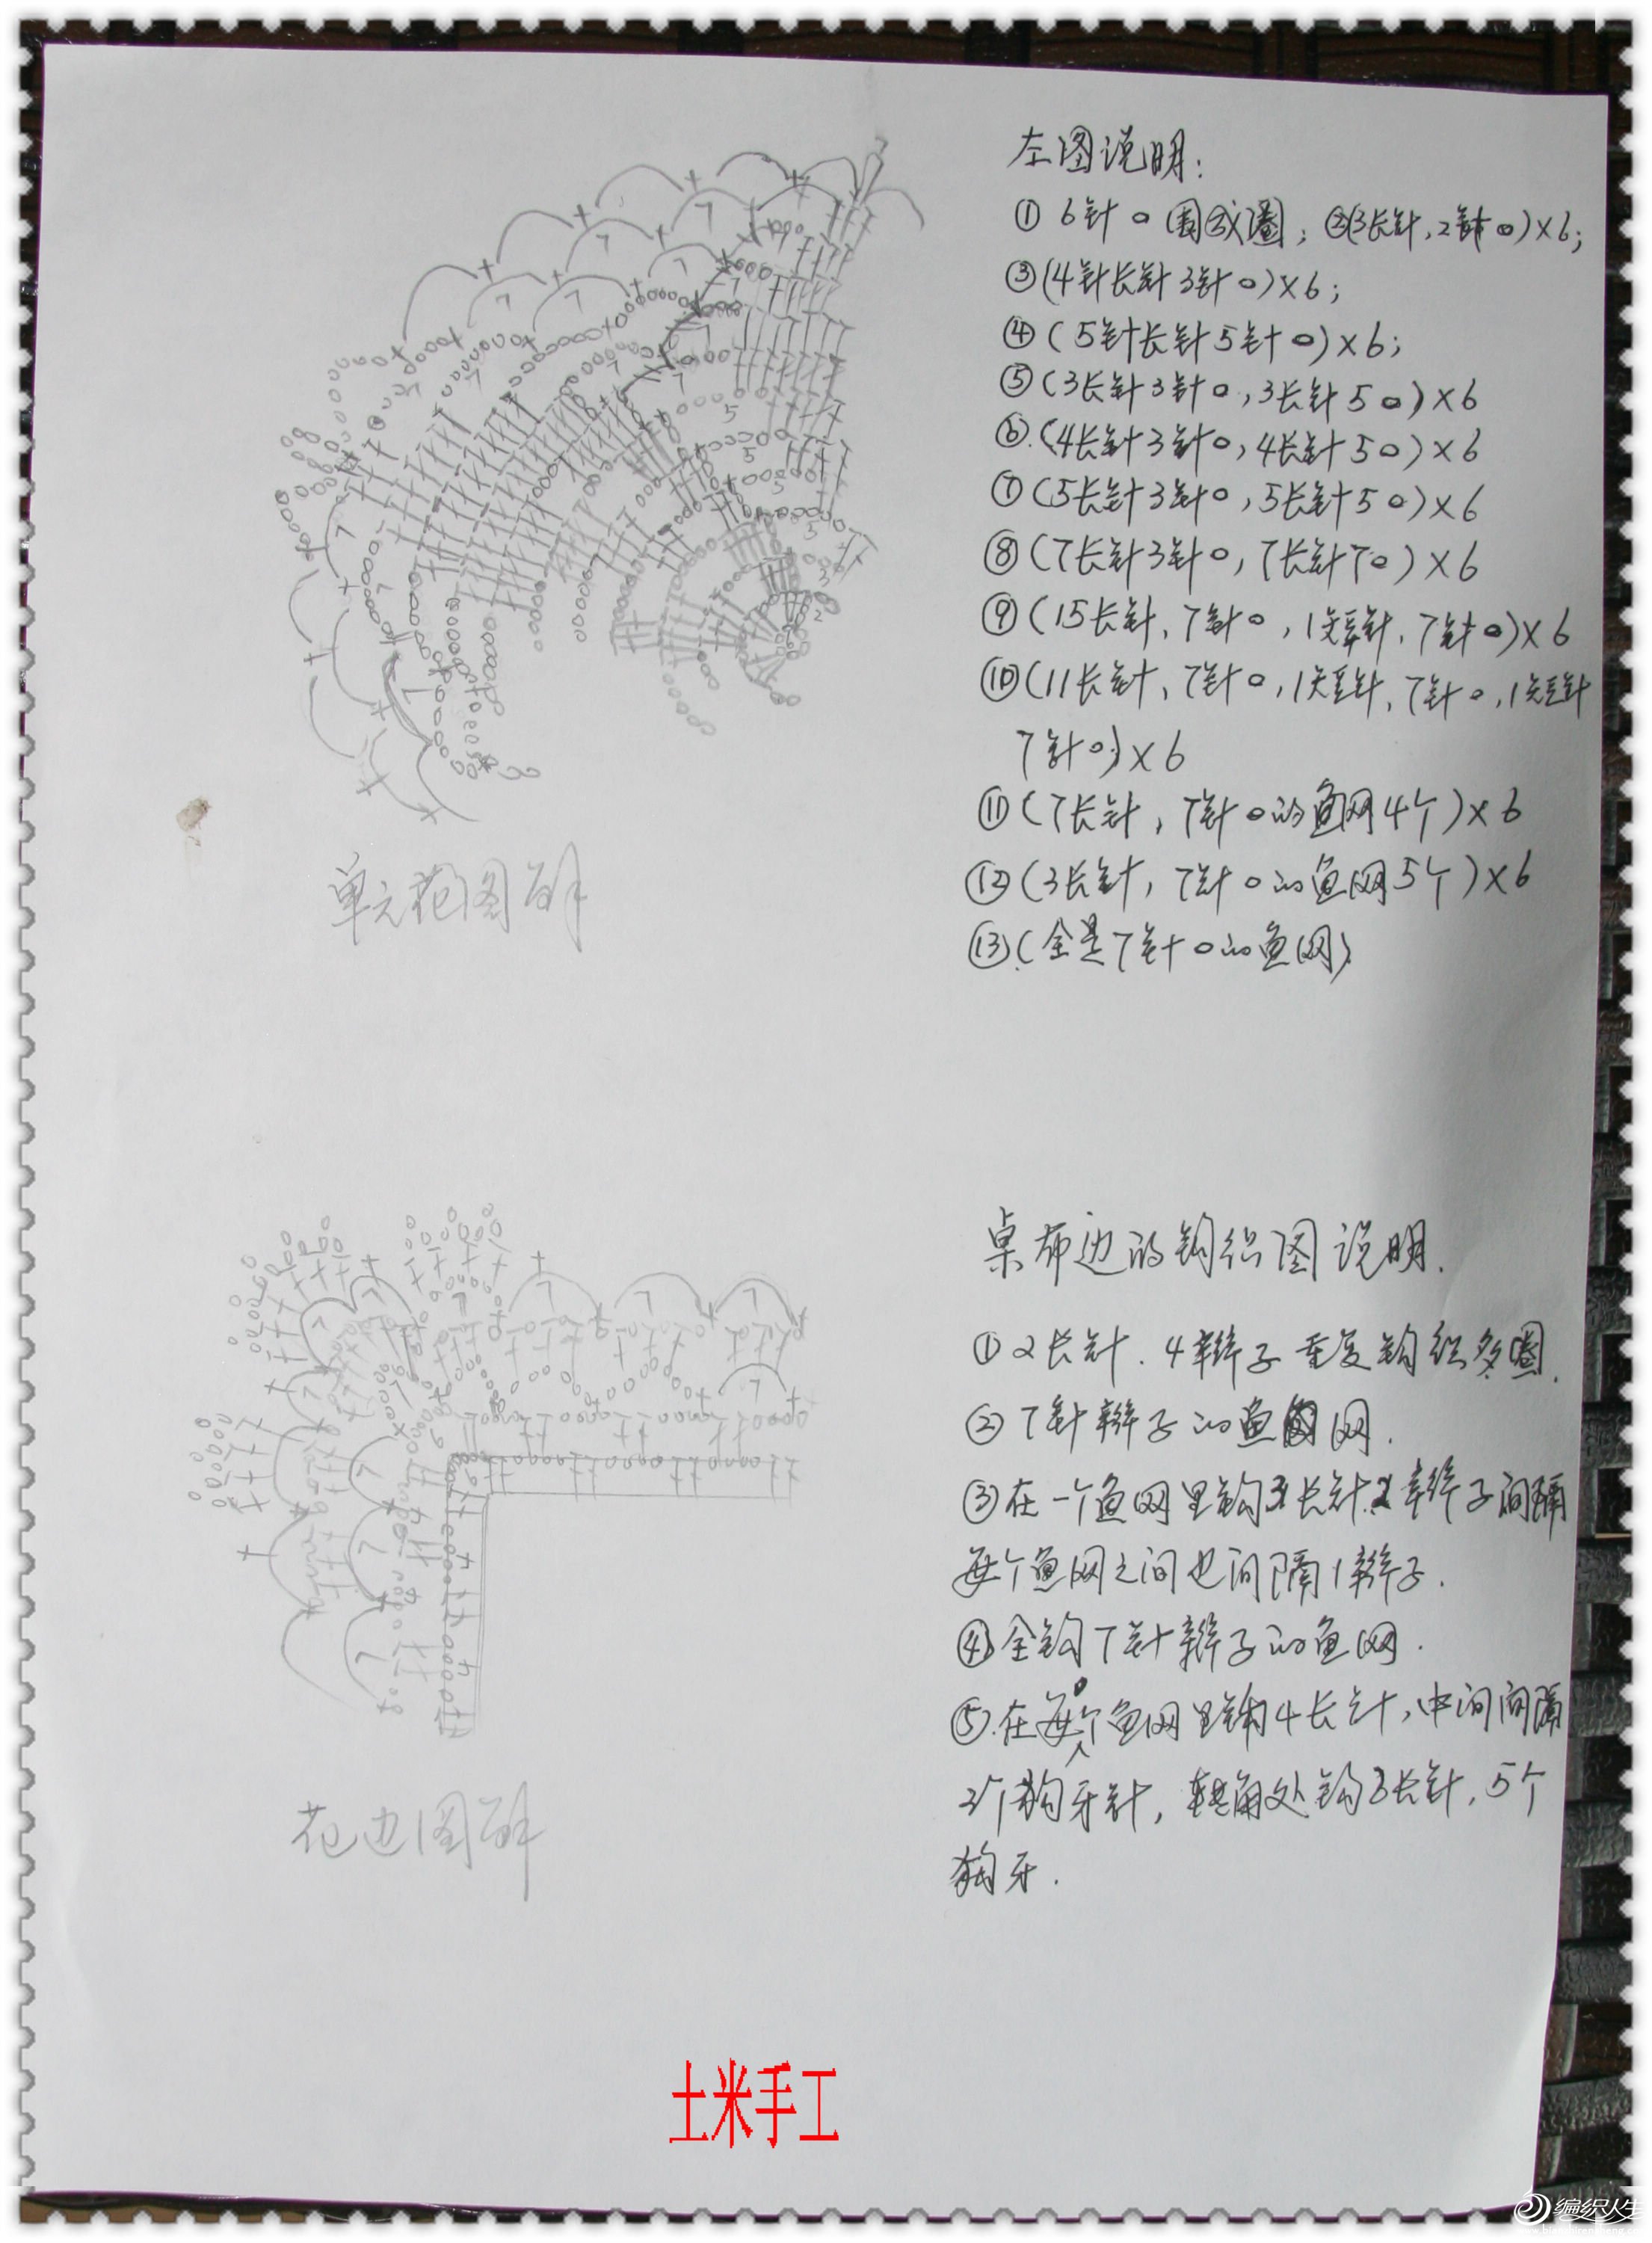 左图说明：
① 6针o围成圈；②(3长针，2针o)×6；
③(4针长针3针o)×6；
④(5针长针5针o)×6；
⑤(3长针3针o，3长针5o)×6
⑥.(4长针3针o，4长针5o)×6
⑦(5长针3针o，5长针5o)×6
⑧(7长针3针o，7长针7o)×6
⑨(15长针，7针o，1短针，7针o)×6
⑩(11长针，7针o，1短针，7针o，1短针
7针o)×6
⑪(7长针，7针o的鱼网4个)×6
⑫(3长针，7针o的鱼网5个)×6
⑬.(全是7针o的鱼网)
单元花图解
桌布边的钩织图说明.
①2长针.4辫子重复钩织多圈.
②7针辫子的鱼网.
③在一个鱼网里钩长针.2辫子间隔
每个鱼网之间也间隔1辫子.
④全钩7针辫子的鱼网.
⑤.在每个鱼网里钩4长针，中间间隔
个狗牙针，转角处钩3长针，5个
狗牙.
花边图解
土米手工
编织人生